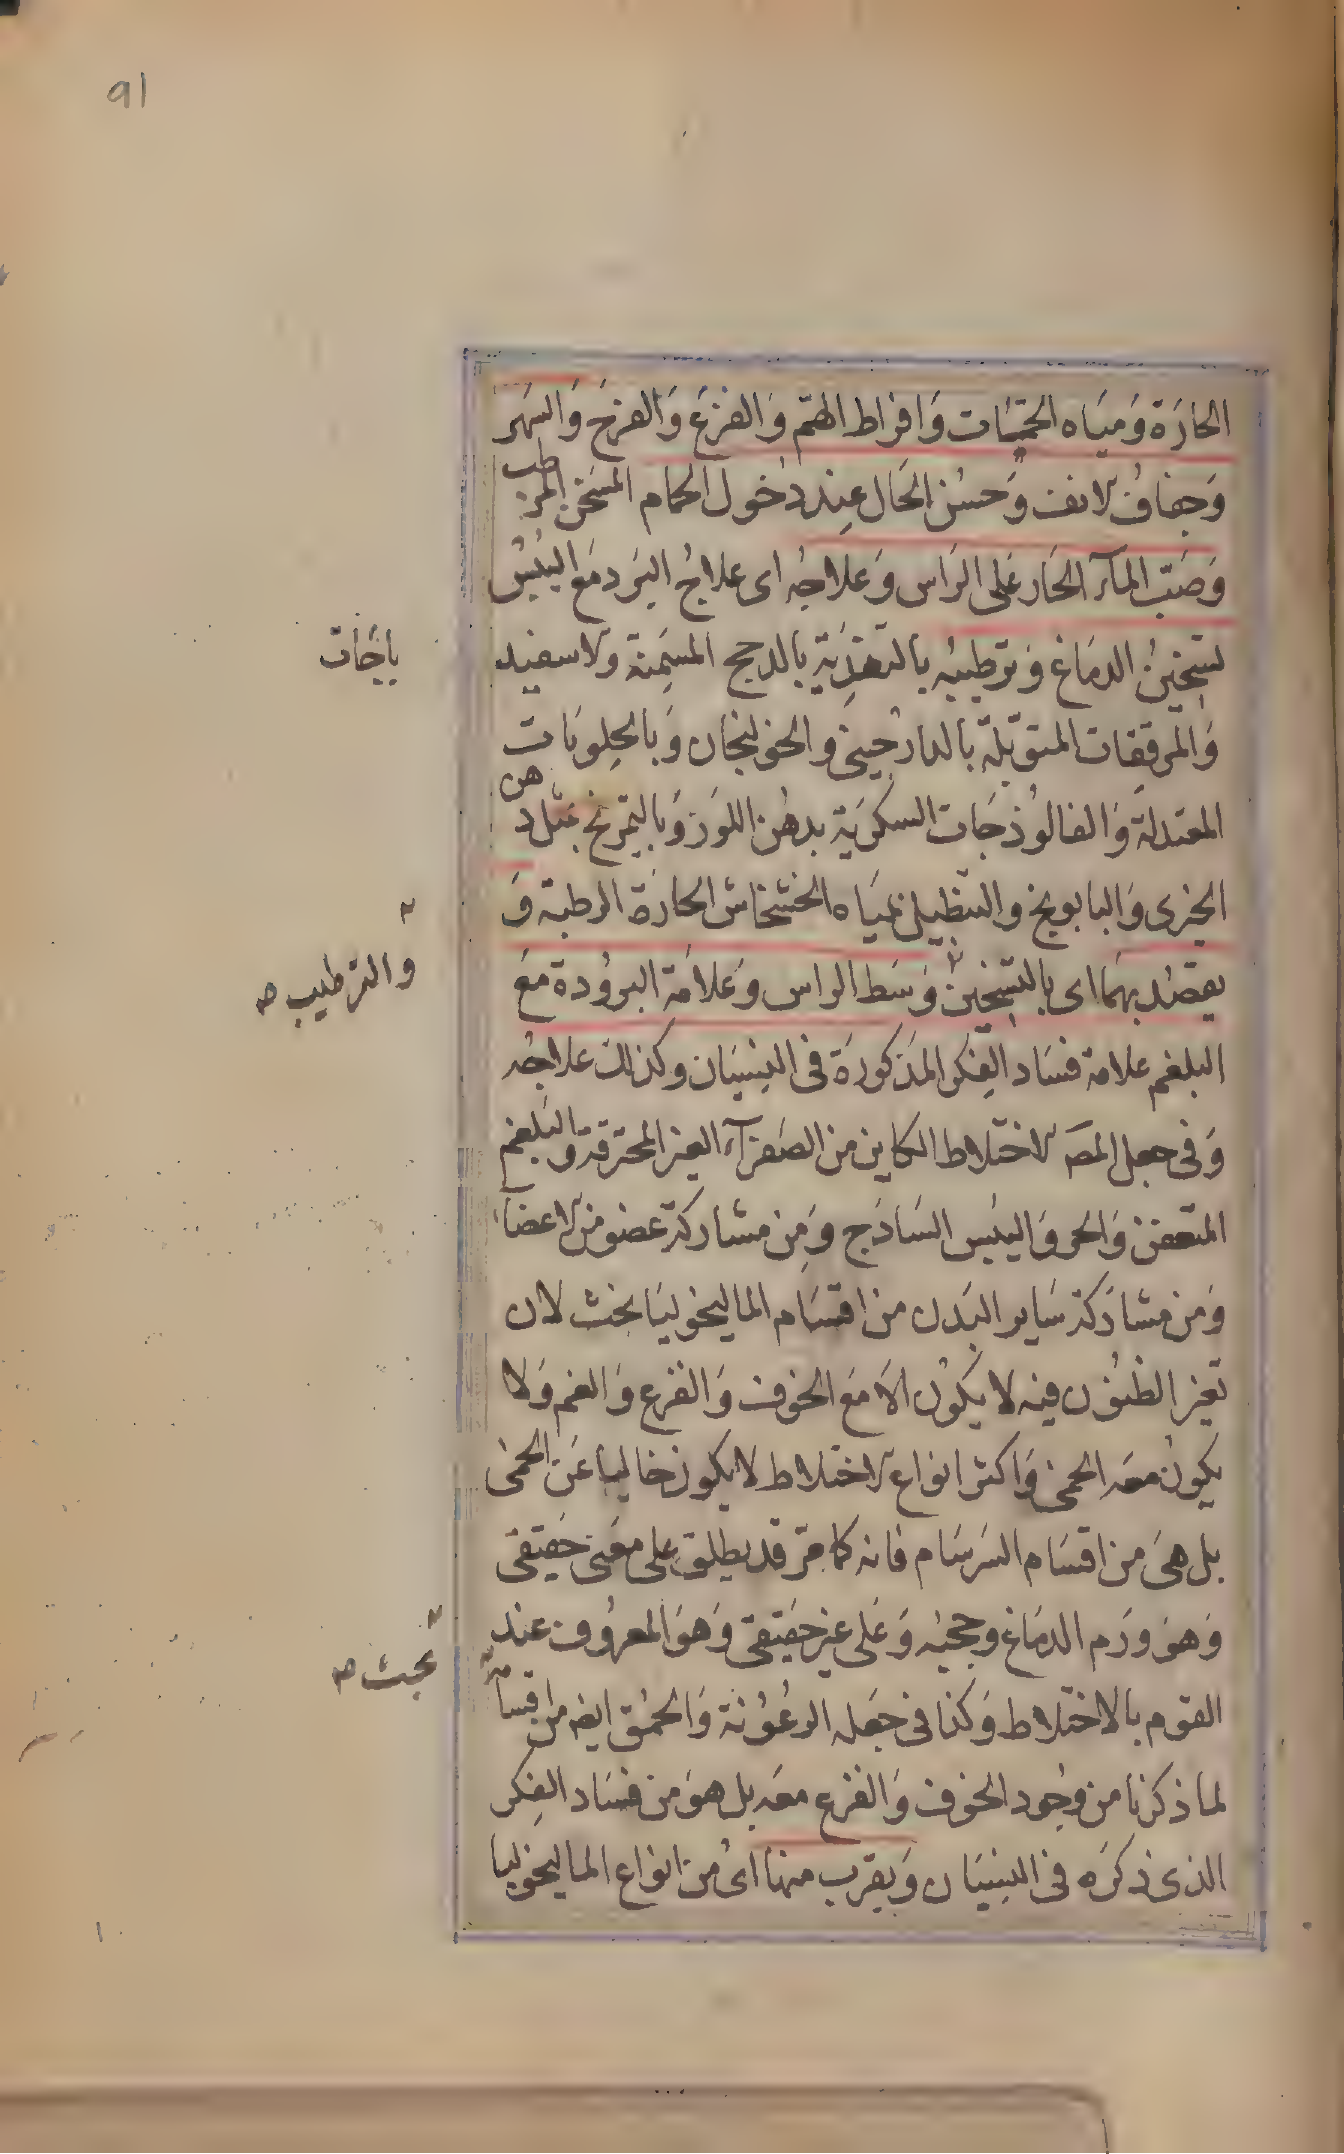 ٩١
الحارة ومياه الحميات وافراط الهم والفزع والفرح والسهر
وجفاف الانف وحسن الحال عند دخول الحمام المسخن المرطب
وصب المآء الحار على الراس وعلاجه اى علاج البرد مع اليبس
تسخين الدماغ وترطيبه بالتغذية بالدجج المسمنة والاسفيد
باجات
والمرققات المتوبلة بالدارجينى والخولنجان وبالحلويات
المعتدلة والفالوذجات السكرية بدهن اللوز وبالتمريخ بمثل دهن
الخيرى والبابونج والتنظيل بمياه الخشخاش الحارة الرطبة و
يقصد بهما اى بالتسخين وسط الراس وعلامة البرودة مع
والترطيب صح
البلغم علامة فساد الفكر المذكورة فى النسيان وكذلك علاجه
وفى جعل المص الاختلاط الكاين من الصفرآء الغير المحترقة والبلغم
المتعفن والحر واليبس الساذج ومن مشاركة عضو من الاعضآء
ومن مشاركة ساير البدن من اقسام الماليخوليا بحث لان
تغير الظنون فيه لا يكون الا مع الخوف والفزع والغم ولا
يكون معه الحمى واكثر انواع الاختلاط لا يكون خاليا عن الحمى
بل هى من اقسام السرسام فانه كما مر قد يطلق على معنى حقيقى
وهو ورم الدماغ وحجبه وعلى غير حقيقى وهو المعروف عند
القوم بالاختلاط وكذا فى جعله الرعونة والحمق ايضا من اقسامه
بحث صح
لما ذكرنا من وجود الخوف والفزع معه بل هو من فساد الفكر
الذى ذكره فى النسيان ويقرب منها اى من انواع الماليخوليا